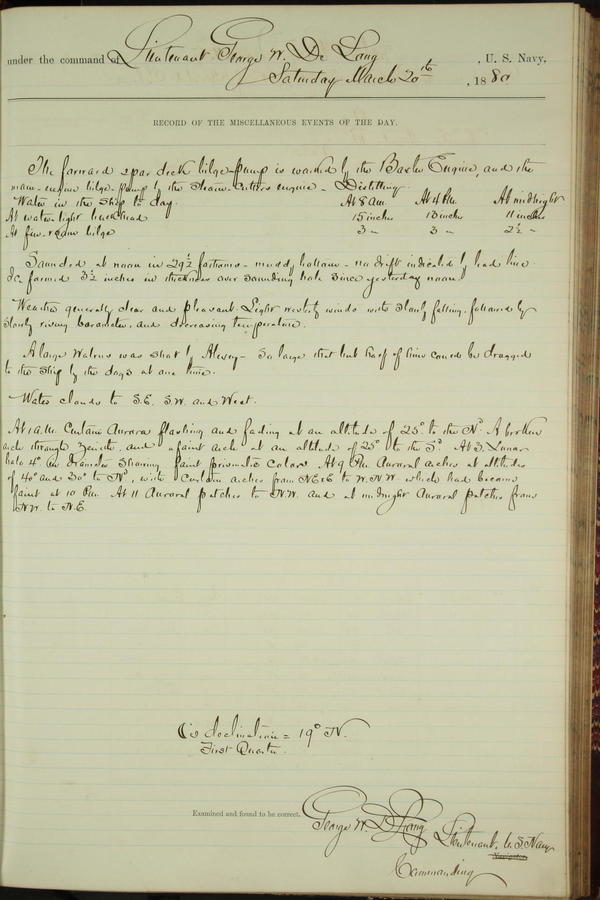 under the command of Lieutenant George W. De Long , U. S. Navy,
Saturday March 20th , 1880
RECORD OF THE MISCELLANEOUS EVENTS OF THE DAY.
The forward spar deck bilge-pump is worked by the Baxter Engine, and the
main-engine bilge-pump by the Steam-Cutters engine - Distilling.
Water in the Ship to day. At 8 a.m. At 4 P.m. At midnight
At water-tight bulkhead 15 inches 13 inches 11 inches
At fire-room bilge 3 " 3 " 2½ "
Sounded at noon in 29½ fathoms - muddy bottom - no drift indicated by lead line.
Ice formed 3½ inches in thickness over sounding hole since yesterday noon.
Weather generally clear and pleasant. Light westerly winds with slowly falling, followed by
slowly rising barometer, and decreasing temperature.
A large Walrus was shot by Alexey - So large that but half of him could be dragged
to the Ship by the dogs at one time.
Water clouds to S.E. S.W. and West.
At 1 a.m. Curtain Aurora flashing and fading at an altitude of 25° to the Nd. A broken
arch through Zenith, and a faint arch at an altitude of 25° to the Sd. At 3, Lunar
halo 4° in diameter showing faint prismatic colors. At 9 P.m. Auroral arches at altitudes
of 40° and 30° to Nd, with Curtain arches from NE x E to W.N.W. which had become
faint at 10 P.m. At 11 Auroral patches to N.W. and at midnight Auroral patches from
N.W. to N.E.
☾'s declination = 19° N.
First Quarter.
Examined and found to be correct.
George W. De Long Lieutenant. U.S. Navy
Navigator.
Commanding